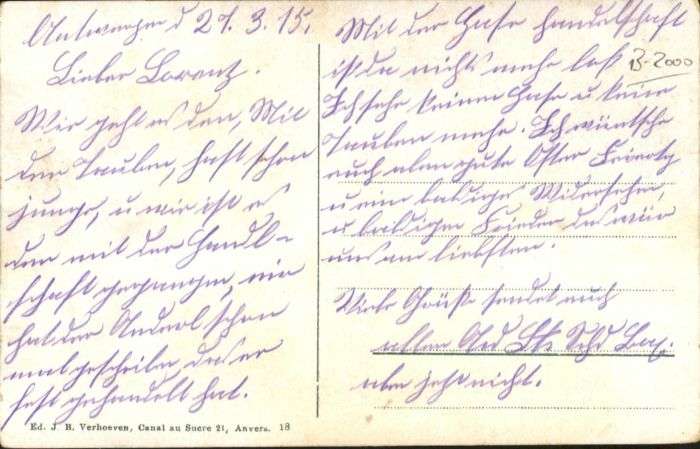 Antwerpen d 27.3.15.
Lieber Lorenz.
Wie geht es den, Mit
den Tauben, hast schon
junge, u wie ist es
den mit der Handl-
schaft gegangen, mir
hat der Anderl schon
mal geschriben das er
fest gehandelt hat.
Mit der Hase Handelschaft
ist da nichts mehr los
13-2000
Ich sehe keinen Hase u keine
Tauben mehr. Ich wüntsche
euch allen gute Oster Feiertg
u ein baldiges Widersehen,
u baldigen Frieden das wär
uns am liebsten.
Viele Grüße sendet euch
allen
aber jetzt nicht.
Ed. J. B. Verhoeven, Canal au Sucre 21, Anvers. 18